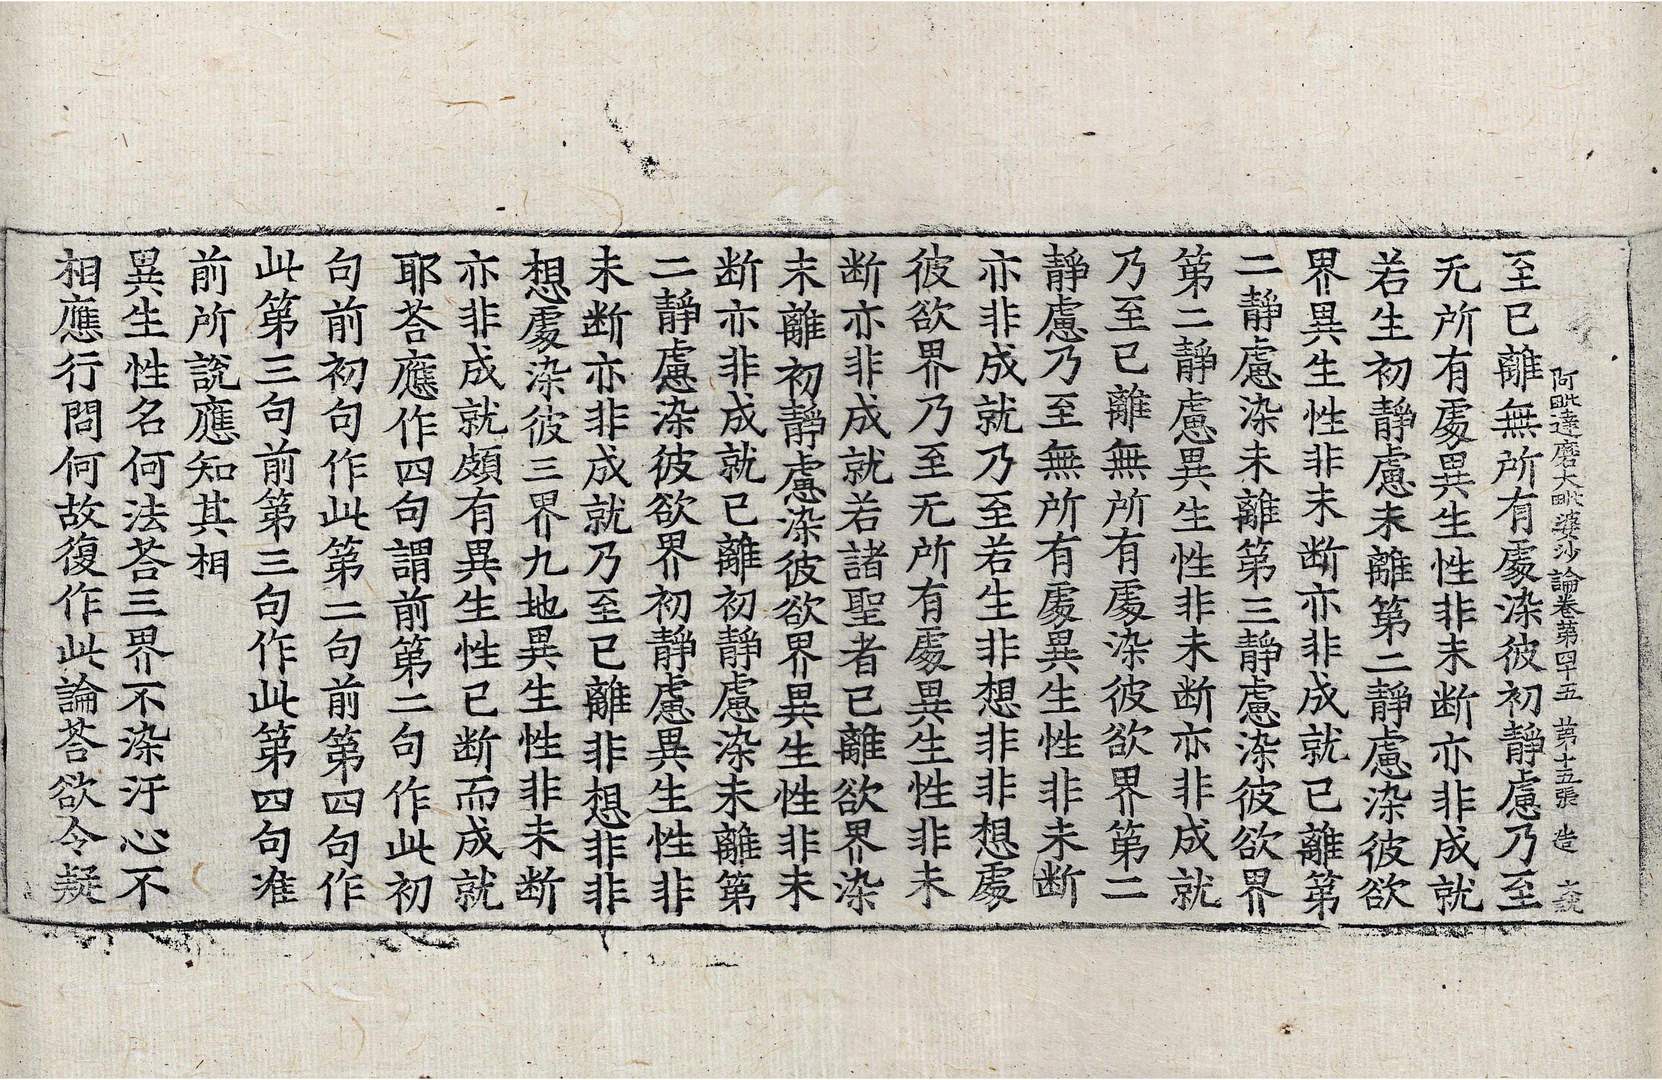 阿毗達磨大毗婆沙論卷第四十五 第十五張 造
至已離無所有處染彼初靜慮乃至
无所有處異生性非未断亦非成就
若生初靜慮未離第二靜慮染彼欲
界異生性非未断亦非成就已離第
二靜慮染未離第三靜慮染彼欲界
第二靜慮異生性非未断亦非成就
乃至已離無所有處染彼欲界第二
靜慮乃至無所有處異生性非未断
亦非成就乃至若生非想非非想處
彼欲界乃至无所有處異生性非未
断亦非成就若諸聖者已離欲界染
未離初靜慮染彼欲界異生性非未
断亦非成就已離初靜慮染未離第
二靜慮染彼欲界初靜慮異生性非
未断亦非成就乃至已離非想非非
想處染彼三界九地異生性非未断
亦非成就頗有異生性已断而成就
耶荅應作四句謂前第二句作此初
句前初句作此第二句前第四句作
此第三句前第三句作此第四句准
前所說應知其相
異生性名何法荅三界不染汙心不
相應行問何故復作此論荅欲令疑